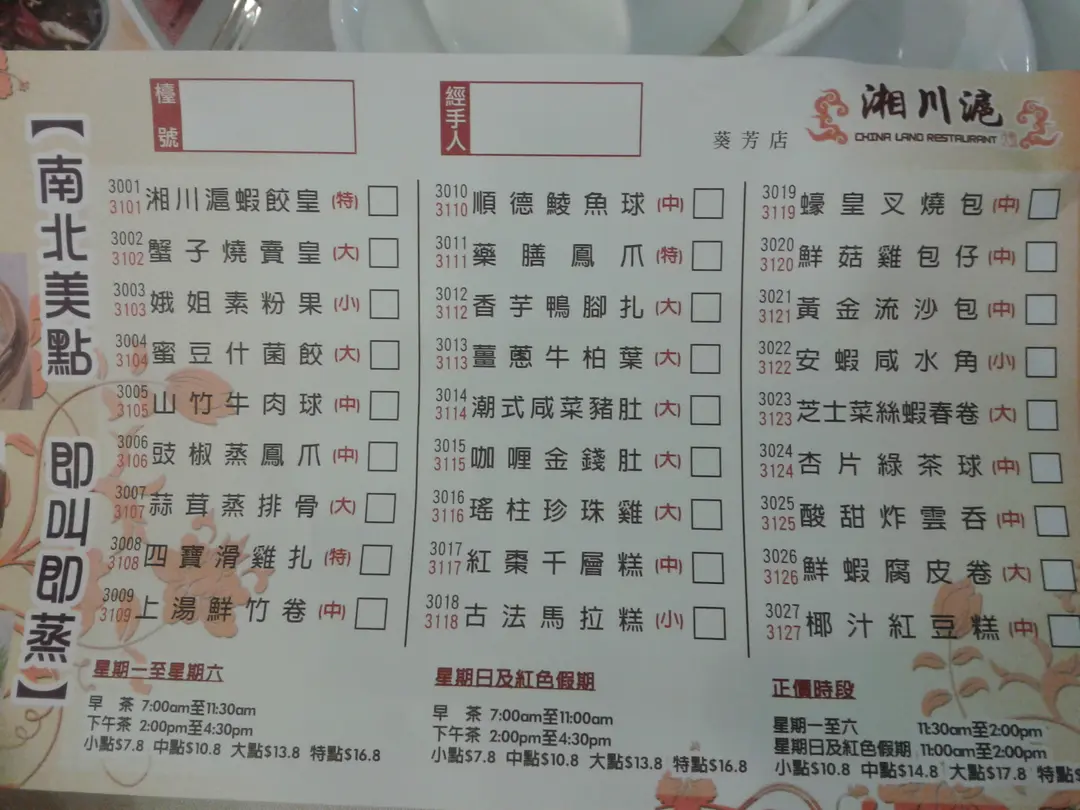 檯號
經手人
葵芳店
湘川滬
CHINA LAND RESTAURANT
【南北美點 即叫即蒸】
3001 3101 湘川滬蝦餃皇 (特)
3002 3102 蟹子燒賣皇 (大)
3003 3103 娥姐素粉果 (小)
3004 3104 蜜豆什菌餃 (大)
3005 3105 山竹牛肉球 (中)
3006 3106 豉椒蒸鳳爪 (中)
3007 3107 蒜茸蒸排骨 (大)
3008 3108 四寶滑雞扎 (特)
3009 3109 上湯鮮竹卷 (中)
3010 3110 順德鯪魚球 (中)
3011 3111 藥膳鳳爪 (特)
3012 3112 香芋鴨腳扎 (大)
3013 3113 薑蔥牛柏葉 (大)
3014 3114 潮式咸菜豬肚 (大)
3015 3115 咖喱金錢肚 (大)
3016 3116 瑤柱珍珠雞 (大)
3017 3117 紅棗千層糕 (中)
3018 3118 古法馬拉糕 (小)
3019 3119 蠔皇叉燒包 (中)
3020 3120 鮮菇雞包仔 (中)
3021 3121 黃金流沙包 (中)
3022 3122 安蝦咸水角 (小)
3023 3123 芝士菜絲蝦春卷 (大)
3024 3124 杏片綠茶球 (中)
3025 3125 酸甜炸雲吞 (中)
3026 3126 鮮蝦腐皮卷 (大)
3027 3127 椰汁紅豆糕 (中)
星期一至星期六
早 茶 7:00am至11:30am
下午茶 2:00pm至4:30pm
小點$7.8 中點$10.8 大點$13.8 特點$16.8
星期日及紅色假期
早 茶 7:00am至11:00am
下午茶 2:00pm至4:30pm
小點$7.8 中點$10.8 大點$13.8 特點$16.8
正價時段
星期一至六 11:30am至2:00pm
星期日及紅色假期 11:00am至2:00pm
小點$10.8 中點$14.8 大點$17.8 特點$